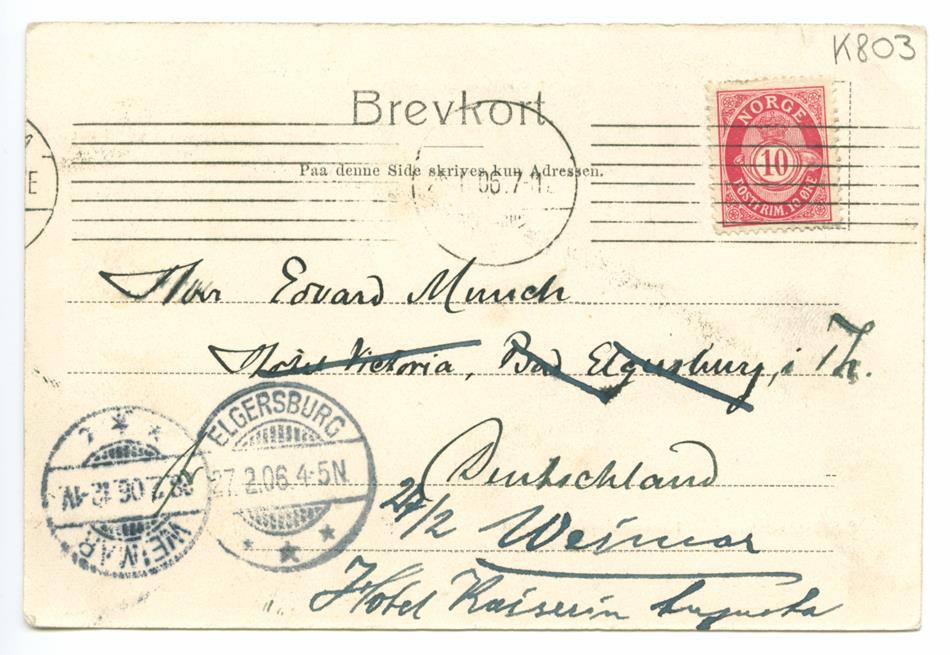 K803
Brevkort
NORGE
10
POSTFRIM. 10 ØRE
Paa denne Side skrives kun Adressen.
06.7-1
E
Herr Edvard Munch
Hotel Victoria, Bad Elgersburg, i Th.
ELGERSBURG
27.2.06.4-5N.
Deutschland
27/2 Weimar
WEIMAR
28.2.06.12-1V.
Hotel Kaiserin Augusta